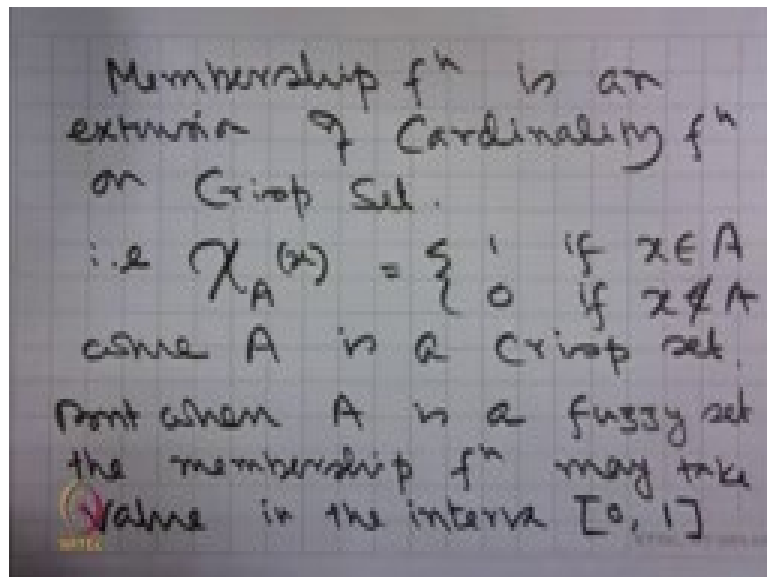 Membership fⁿ is an
extension of Cardinality fⁿ
on Crisp Set.
i.e χ_A(x) = { 1 if x ∈ A
0 if x ∉ A
where A is a Crisp set.
But when A is a fuzzy set
the membership fⁿ may take
Value in the interva [0, 1]
NPTEL